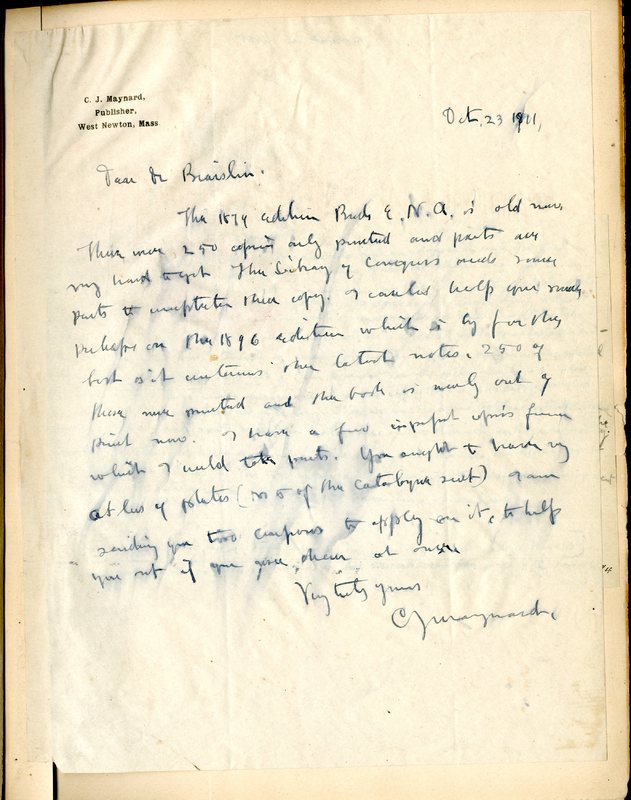 C. J. Maynard,
Publisher,
West Newton, Mass.
Oct. 23 1911,
Dear Dr Braislin.
The 1879 edition Birds E. N. A. is old now
There were 250 copies only printed and parts are
very hard to get The Library of Congress needs some
parts to complete their copy. I could help you
perhaps on the 1896 edition which is by far the
best as it contains the latest notes. 250 of
these were printed and the book is nearly out of
print now. I have a few imperfect copies from
which I could take parts. You ought to have my
atlas of plates (no 5 of the catalogue sent) I am
sending you two coupons to apply on it, to help
you out if you order at once
Very truly yours
C J Maynard.